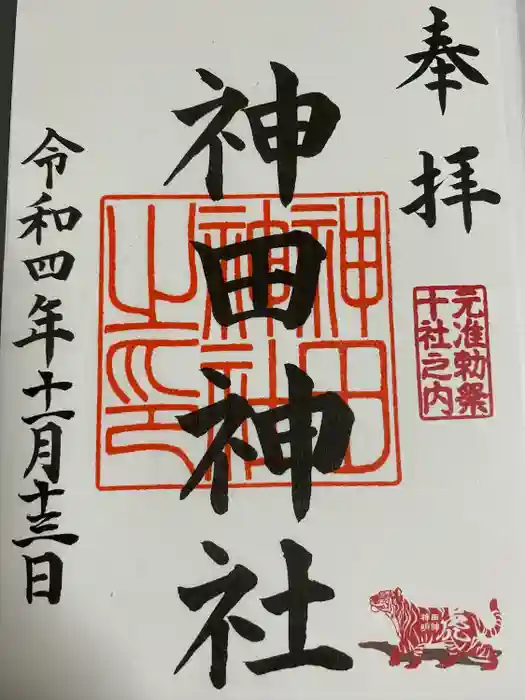 奉拝
元准勅祭
十社之内
神田神社
神田神社之印
令和四年十一月十三日